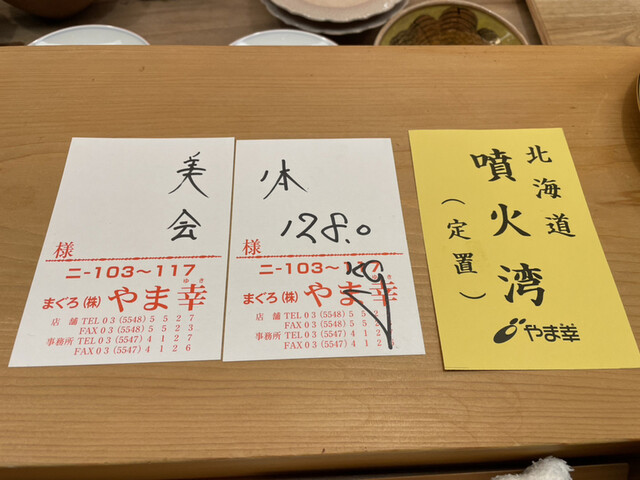 美会
様
ニ-103〜117
まぐろ(株)やま幸
ゆき
店舗 TEL 03 (5548) 5527
FAX 03 (5548) 5523
事務所 TEL 03 (5547) 4127
FAX 03 (5547) 4126
本
128.0
様
ニ-103〜117
まぐろ(株)やま幸
ゆき
店舗 TEL 03 (5548) 55
FAX 03 (5548) 55
事務所 TEL 03 (5547) 412
FAX 03 (5547) 412
北海道
噴火湾
(定置)
やま幸